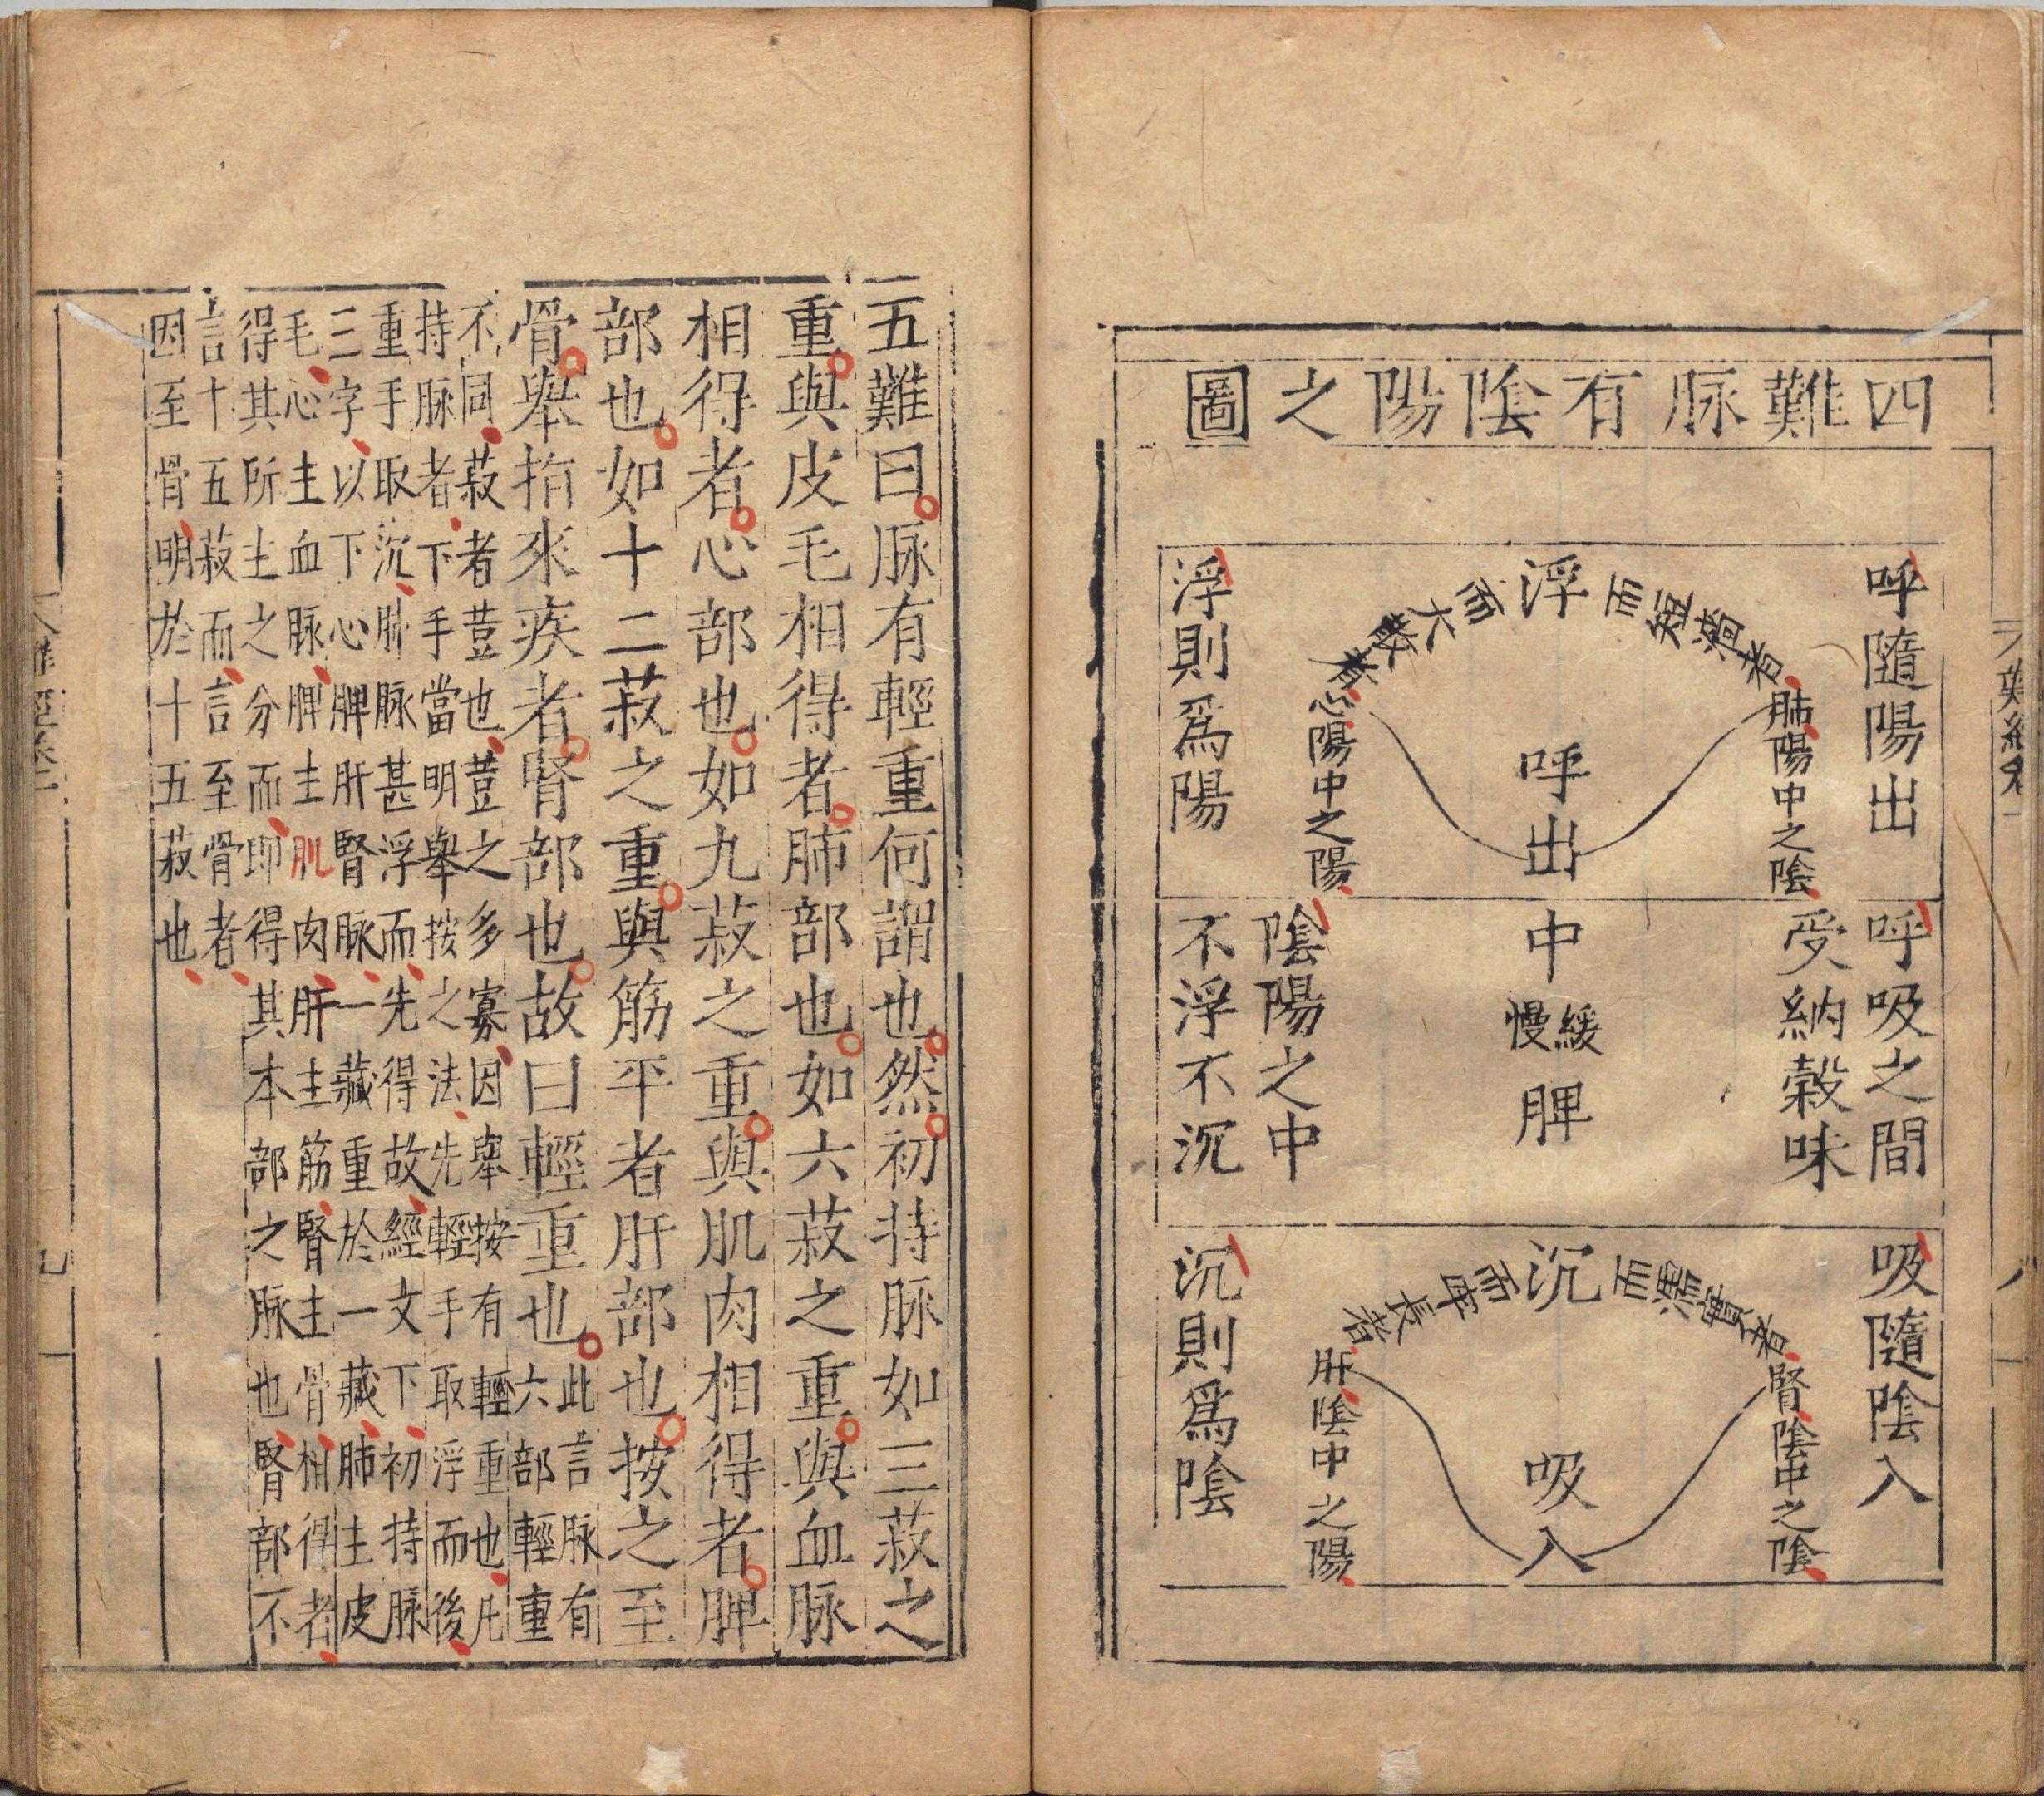 四難脉有陰陽之圖
呼隨陽出
浮
而短濇者
肺陽中之陰
而大散者
心陽中之陽
呼出
浮則為陽
呼吸之間
受納穀味
中
緩慢
脾
陰陽之中
不浮不沉
吸隨陰入
沉
而濡實者
腎陰中之陰
而牢長者
肝陰中之陽
吸入
沉則為陰
五難曰脉有輕重何謂也然初持脉如三菽之
重與皮毛相得者肺部也如六菽之重與血脉
相得者心部也如九菽之重與肌肉相得者脾
部也如十二菽之重與筋平者肝部也按之至
骨舉指來疾者腎部也故曰輕重也此言脉有
六部輕重
不同菽者荳也荳之多寡因舉按有輕重也凡
持脉者下手當明舉按之法先輕手取浮而後
重手取沉肺脉甚浮而先得故經文下初持脉
三字以下心脾肝腎脉一藏重於一藏肺主皮
毛心主血脉脾主肌肉肝主筋腎主骨相得者
得其所主之分而即得其本部之脉也腎部不
言十五菽而言至骨者
因至骨明於十五菽也